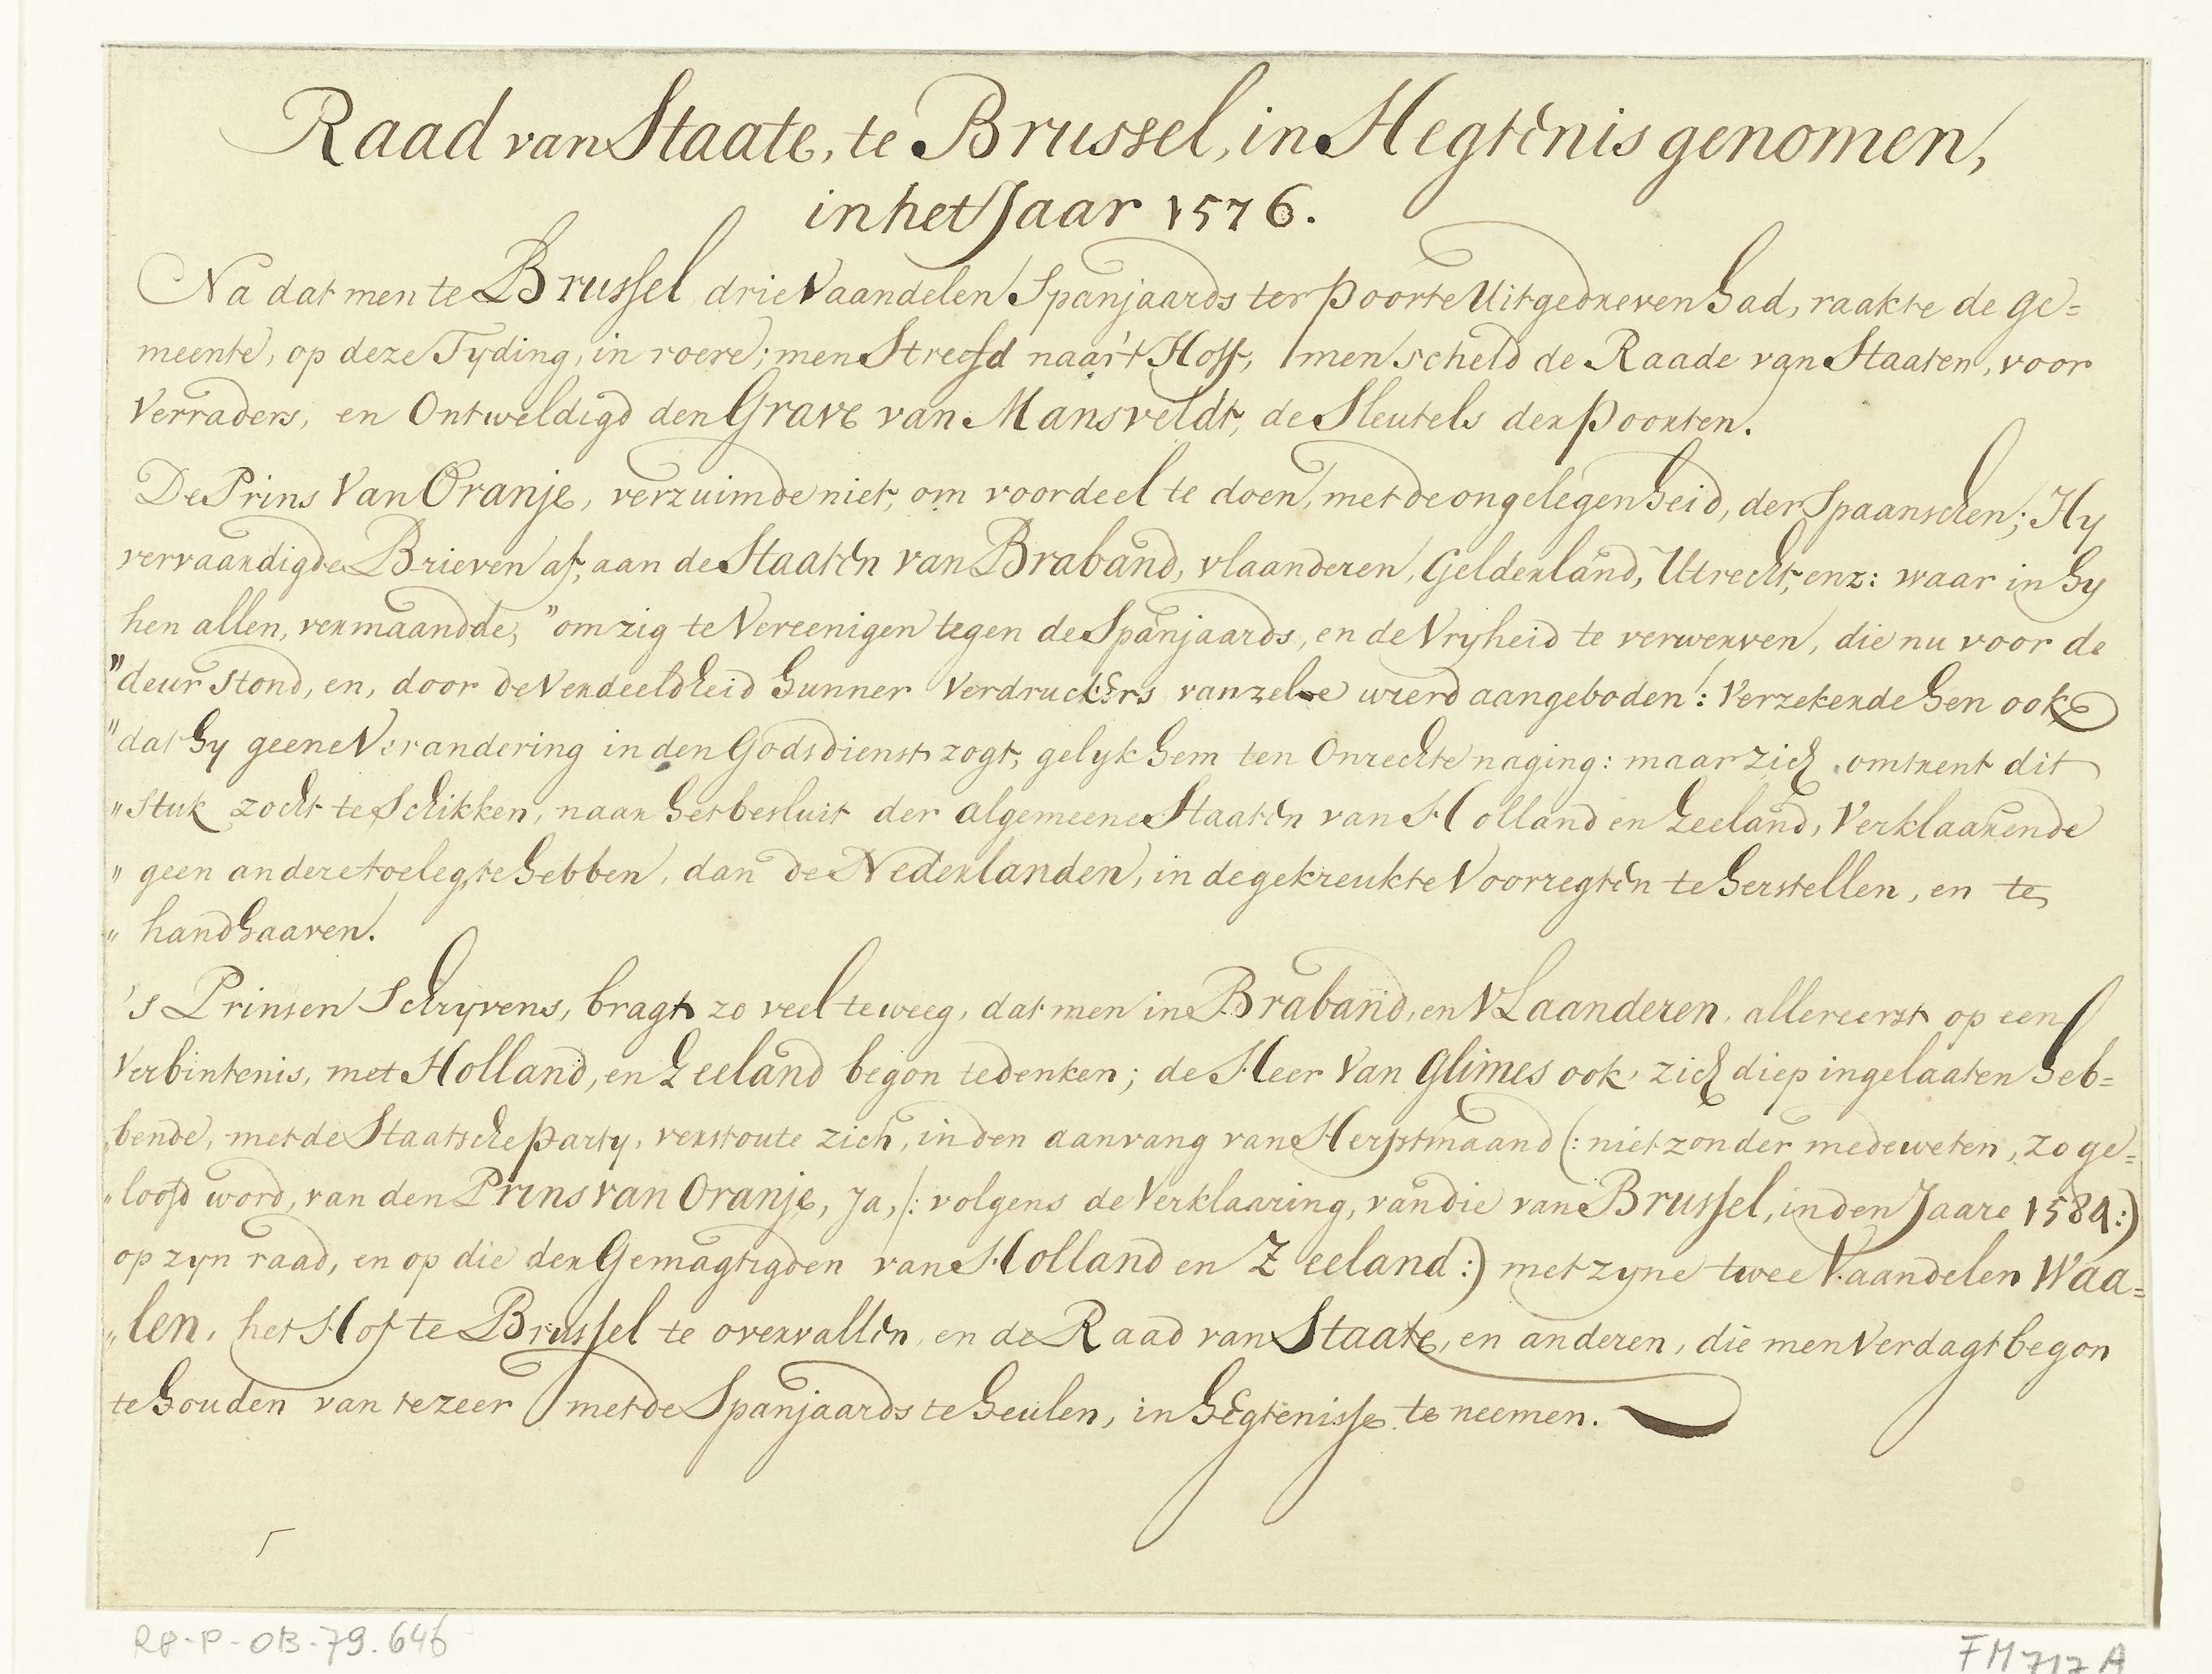 Raad van Staate, te Brussel, in Hegtenis genomen,
in het Jaar 1576.
Na dat men te Brussel drie Vaandelen Spanjaards ter poorte Uitgedreven had, raakte de ge=
meente, op deze Tyding, in roere; men Streefd naar't Hoff, men scheld de Raade van Staaten, voor
Verraders, en Ontweldigd den Grave van Mansveldt, de Sleutels der poorten.
De Prins Van Oranje, verzuimde niet, om voordeel te doen, met de ongelegenheid, der Spaanschen; Hy
vervaardigde Brieven af, aan de Staaten van Braband, vlaanderen, Gelderland, Utrecht, enz: waar in hy
hen allen, vermaandde, "om zig te Vereenigen tegen de Spanjaards, en de Vryheid te verwerven, die nu voor de
"deur Stond, en, door de Verdeeldheid hunner Verdruckers van zelve wierd aangeboden!: Verzekerde hen ook
"dat hy geene Verandering in den Godsdienst zogt, gelyk hem ten Onrechte naging: maar zich omtrent dit
"Stuk zocht te Schikken, naar het besluit der algemeene Staaten van Holland en Zeeland, Verklaarende
"geen andere toeleg te hebben, dan de Nederlanden, in de gekreukte Voorregten te herstellen, en te
"handhaaven.
's Prinsen Schryvens, bragt zo veel te weeg, dat men in Braband, en VLaanderen, allereerst op een
Verbintenis, met Holland, en Zeeland begon te denken; de Heer Van Glimes ook, zich diep ingelaaten heb=
bende, met de Staatsche party, verstoute zich, in den aanvang van Herfstmaand (: niet zonder medeweten, zo ge=
"loofd word, van den Prins van Oranje, Ja, /: volgens de Verklaaring, van die van Brussel, in den Jaare 1584:)
op zyn raad, en op die der Gemagtigden van Holland en Zeeland:) met zyne twee Vaandelen Waa=
"len, het Hof te Brussel te overvallen, en de Raad van Staate, en anderen, die men Verdagt begon
te houden van te zeer met de Spanjaards te heulen, in hegtenisse te neemen.
RP-P-OB-79.646
FM 717 A